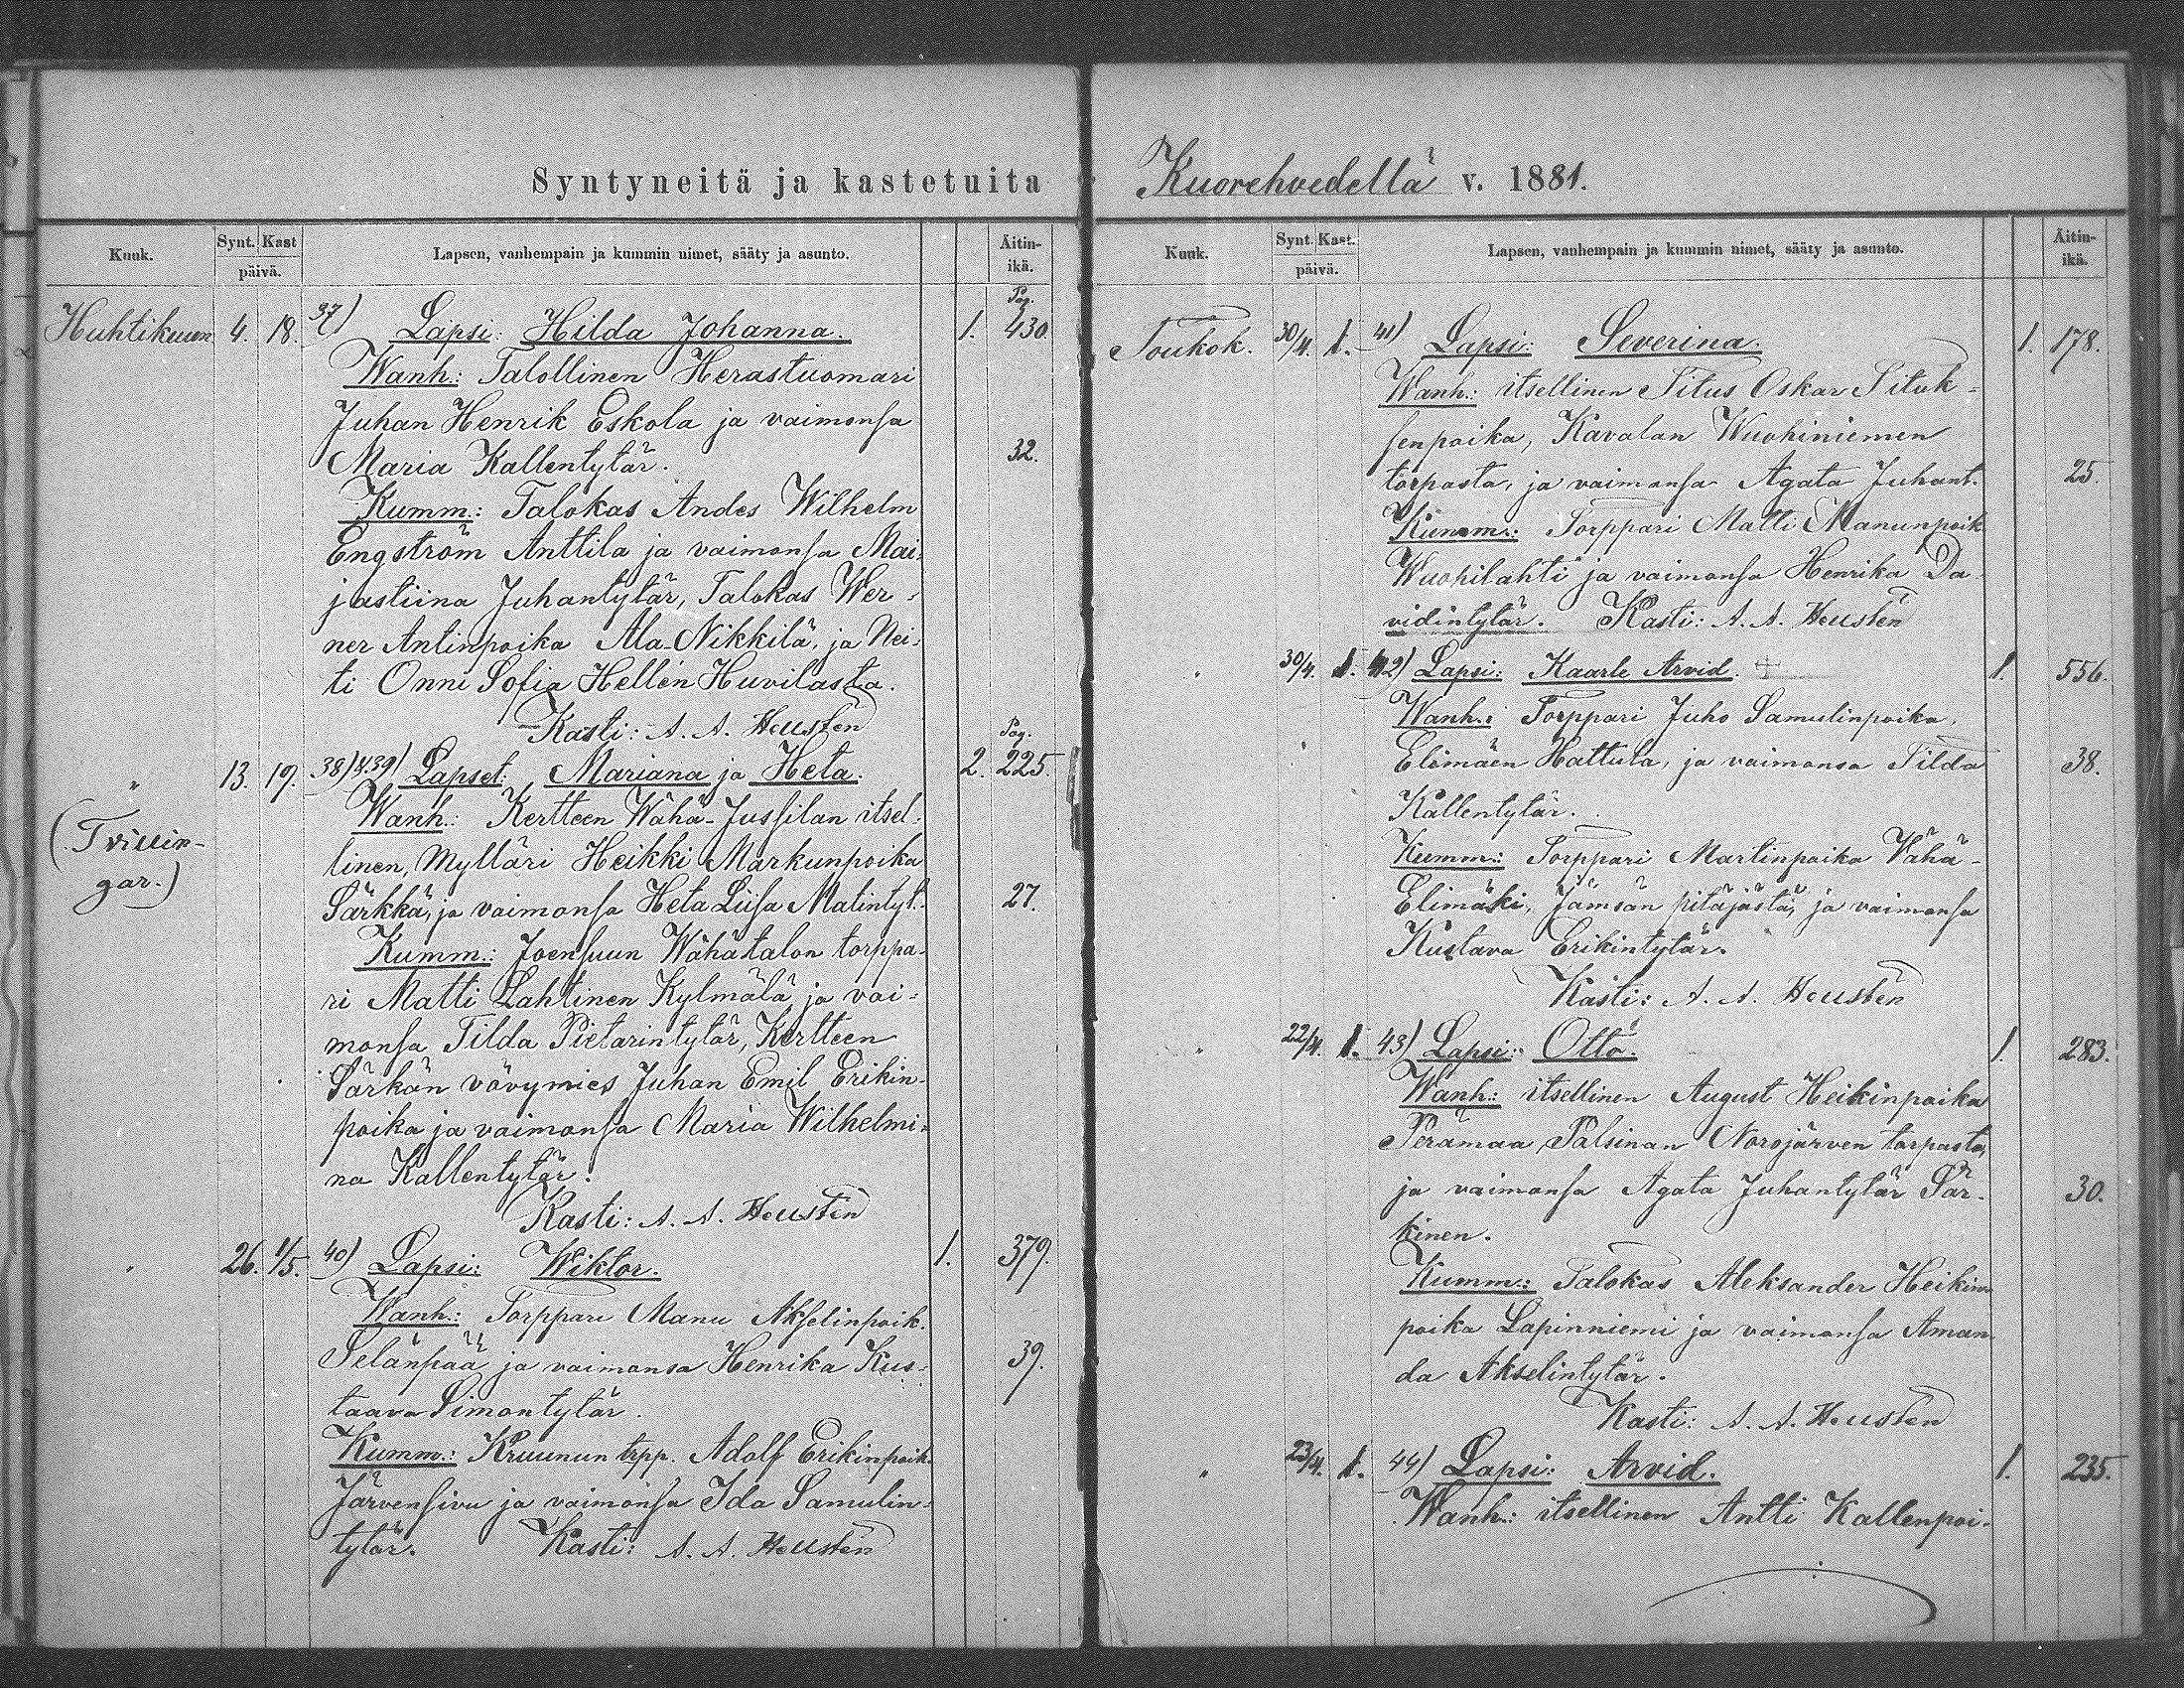 Syntyneitä ja kastetuita
Kuuk.
Synt. Kast
päivä.
Lapsen, vanhempain ja kummin nimet, sääty ja asunto.
Äitin-
ikä.
Pag.
Huhtikuun 4. 18. 37) Lapsi: Hilda Johanna. 1. 430
Wanh.: Talollinen Herastuomari
Juhan Henrik Eskola ja vaimonsa
Maria Kallentytär. 32.
Kumm.: Talokas Andes Wilhelm
Engström Anttila ja vaimonsa Mai-
jastiina Juhantytär, Talokas Wer-
ner Antinpoika Ala-Nikkilä, ja Nei-
ti Onni Sofia Hellén Huvilasta.
Kasti: A. A. Heusten
Pag.
" 13. 19. 38) & 39) Lapset: Mariana ja Heta. 2. 225.
(Tvillin-
gar.)
Wanh.: Kertteen Wähä-Jussilan itsel-
linen, Mylläri Heikki Markunpoika
Särkkä, ja vaimonsa Heta Liisa Matintyt. 27.
Kumm.: Joensuun Wähätalon torppa-
ri Matti Lahtinen Kylmälä, ja vai-
monsa Tilda Pietarintytär, Kertteen
Särkän vävymies Juhan Emil Erikin-
poika ja vaimonsa Maria Wilhelmi-
na Kallentytär.
Kasti: A. A. Heusten
" 26. 1/5. 40) Lapsi: Wiktor. 1. 379.
Wanh.: Torppari Manu Akselinpoik.
Selänpää ja vaimonsa Henrika Kus-
taava Simontytär. 39.
Kumm.: Kruunun trpp. Adolf Erikinpoik.
Järvensivu ja vaimonsa Ida Samulin-
tytär. Kasti: A. A. Heusten
Kuorehvedellä v. 1881.
Kuuk.
Synt. Kast.
päivä.
Lapsen, vanhempain ja kummin nimet, sääty ja asunto.
Äitin-
ikä.
Toukok. 30/4. 1. 41) Lapsi: Severina. 1. 178.
Wanh.: itsellinen Titus Oskar Tituk-
senpoika, Kavalan Wuohiniemen
torpasta, ja vaimonsa Agata Juhant. 25.
Kumm.: Torppari Matti Manunpoik
Wuohilahti ja vaimonsa Henrika Da-
vidintytär. Kasti: A. A. Heusten
" 30/4. 1. 42) Lapsi: Kaarle Arvid. + 1. 556.
Wanh.: Torppari Juho Samulinpoika,
Elimäen Hattula, ja vaimonsa Tilda 38.
Kallentytär.
Kumm.: Torppari Martinpoika Vähä-
Elimäki, Jämsän pitäjästä, ja vaimonsa
Kustava Erikintytär.
Kasti: A. A. Heusten
" 22/4. 1. 43) Lapsi: Otto. 1. 283.
Wanh.: itsellinen August Heikinpoika
Perämaa, Palsinan Norojärven torpasta,
ja vaimonsa Agata Juhantytär Sär- 30.
kinen.
Kumm.: Talokas Aleksander Heikin-
poika Lapinniemi ja vaimonsa Aman-
da Akselintytär.
Kasti: A. A. Heusten
" 23/4. 1. 44) Lapsi: Arvid. 1. 235.
Wanh.: itsellinen Antti Kallenpoi-